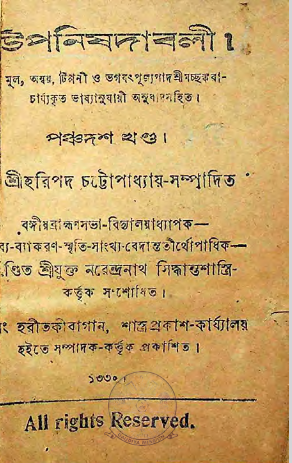 উপনিষদাবলী।
মূল, অন্বয়, টিপ্পনী ও ভগবৎপূজ্যপাদশ্রীমচ্ছঙ্করা-
চার্য্যকৃত ভাষ্যানুযায়ী অনুবাদসহিত।
পঞ্চদশ খণ্ড।
শ্রীহরিপদ চট্টোপাধ্যায়-সম্পাদিত
বঙ্গীয়ব্রাহ্মণসভা-বিদ্যালয়াধ্যাপক—
ব্য-ব্যাকরণ-স্মৃতি-সাংখ্য-বেদান্ততীর্থোপাধিক—
ণ্ডিত শ্রীযুক্ত নরেন্দ্রনাথ সিদ্ধান্তশাস্ত্রি-
কর্ত্তৃক সংশোধিত।
নং হরীতকীবাগান, শাস্ত্রপ্রকাশ-কার্য্যালয়
হইতে সম্পাদক-কর্ত্তৃক প্রকাশিত।
১৩৩০।
All rights Reserved.